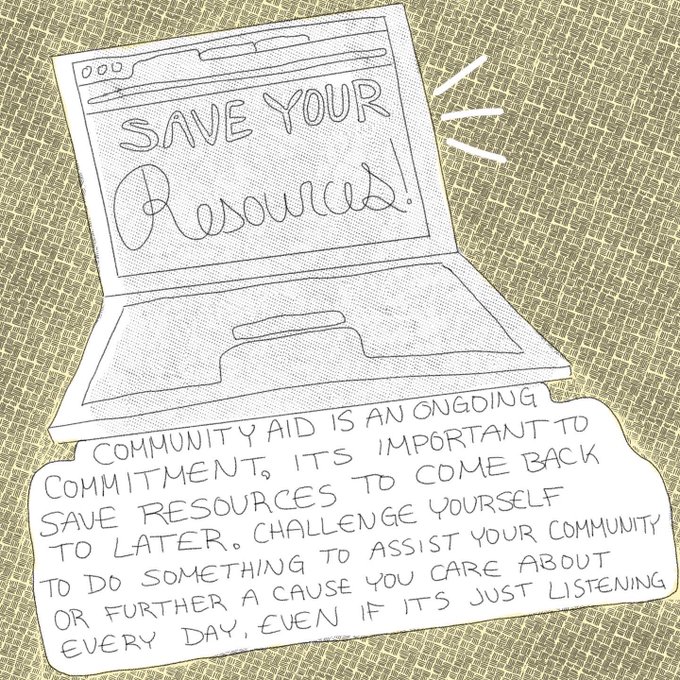 SAVE YOUR
Resources!
COMMUNITY AID IS AN ONGOING
COMMITMENT, ITS IMPORTANT TO
SAVE RESOURCES TO COME BACK
TO LATER. CHALLENGE YOURSELF
TO DO SOMETHING TO ASSIST YOUR COMMUNITY
OR FURTHER A CAUSE YOU CARE ABOUT
EVERY DAY, EVEN IF ITS JUST LISTENING